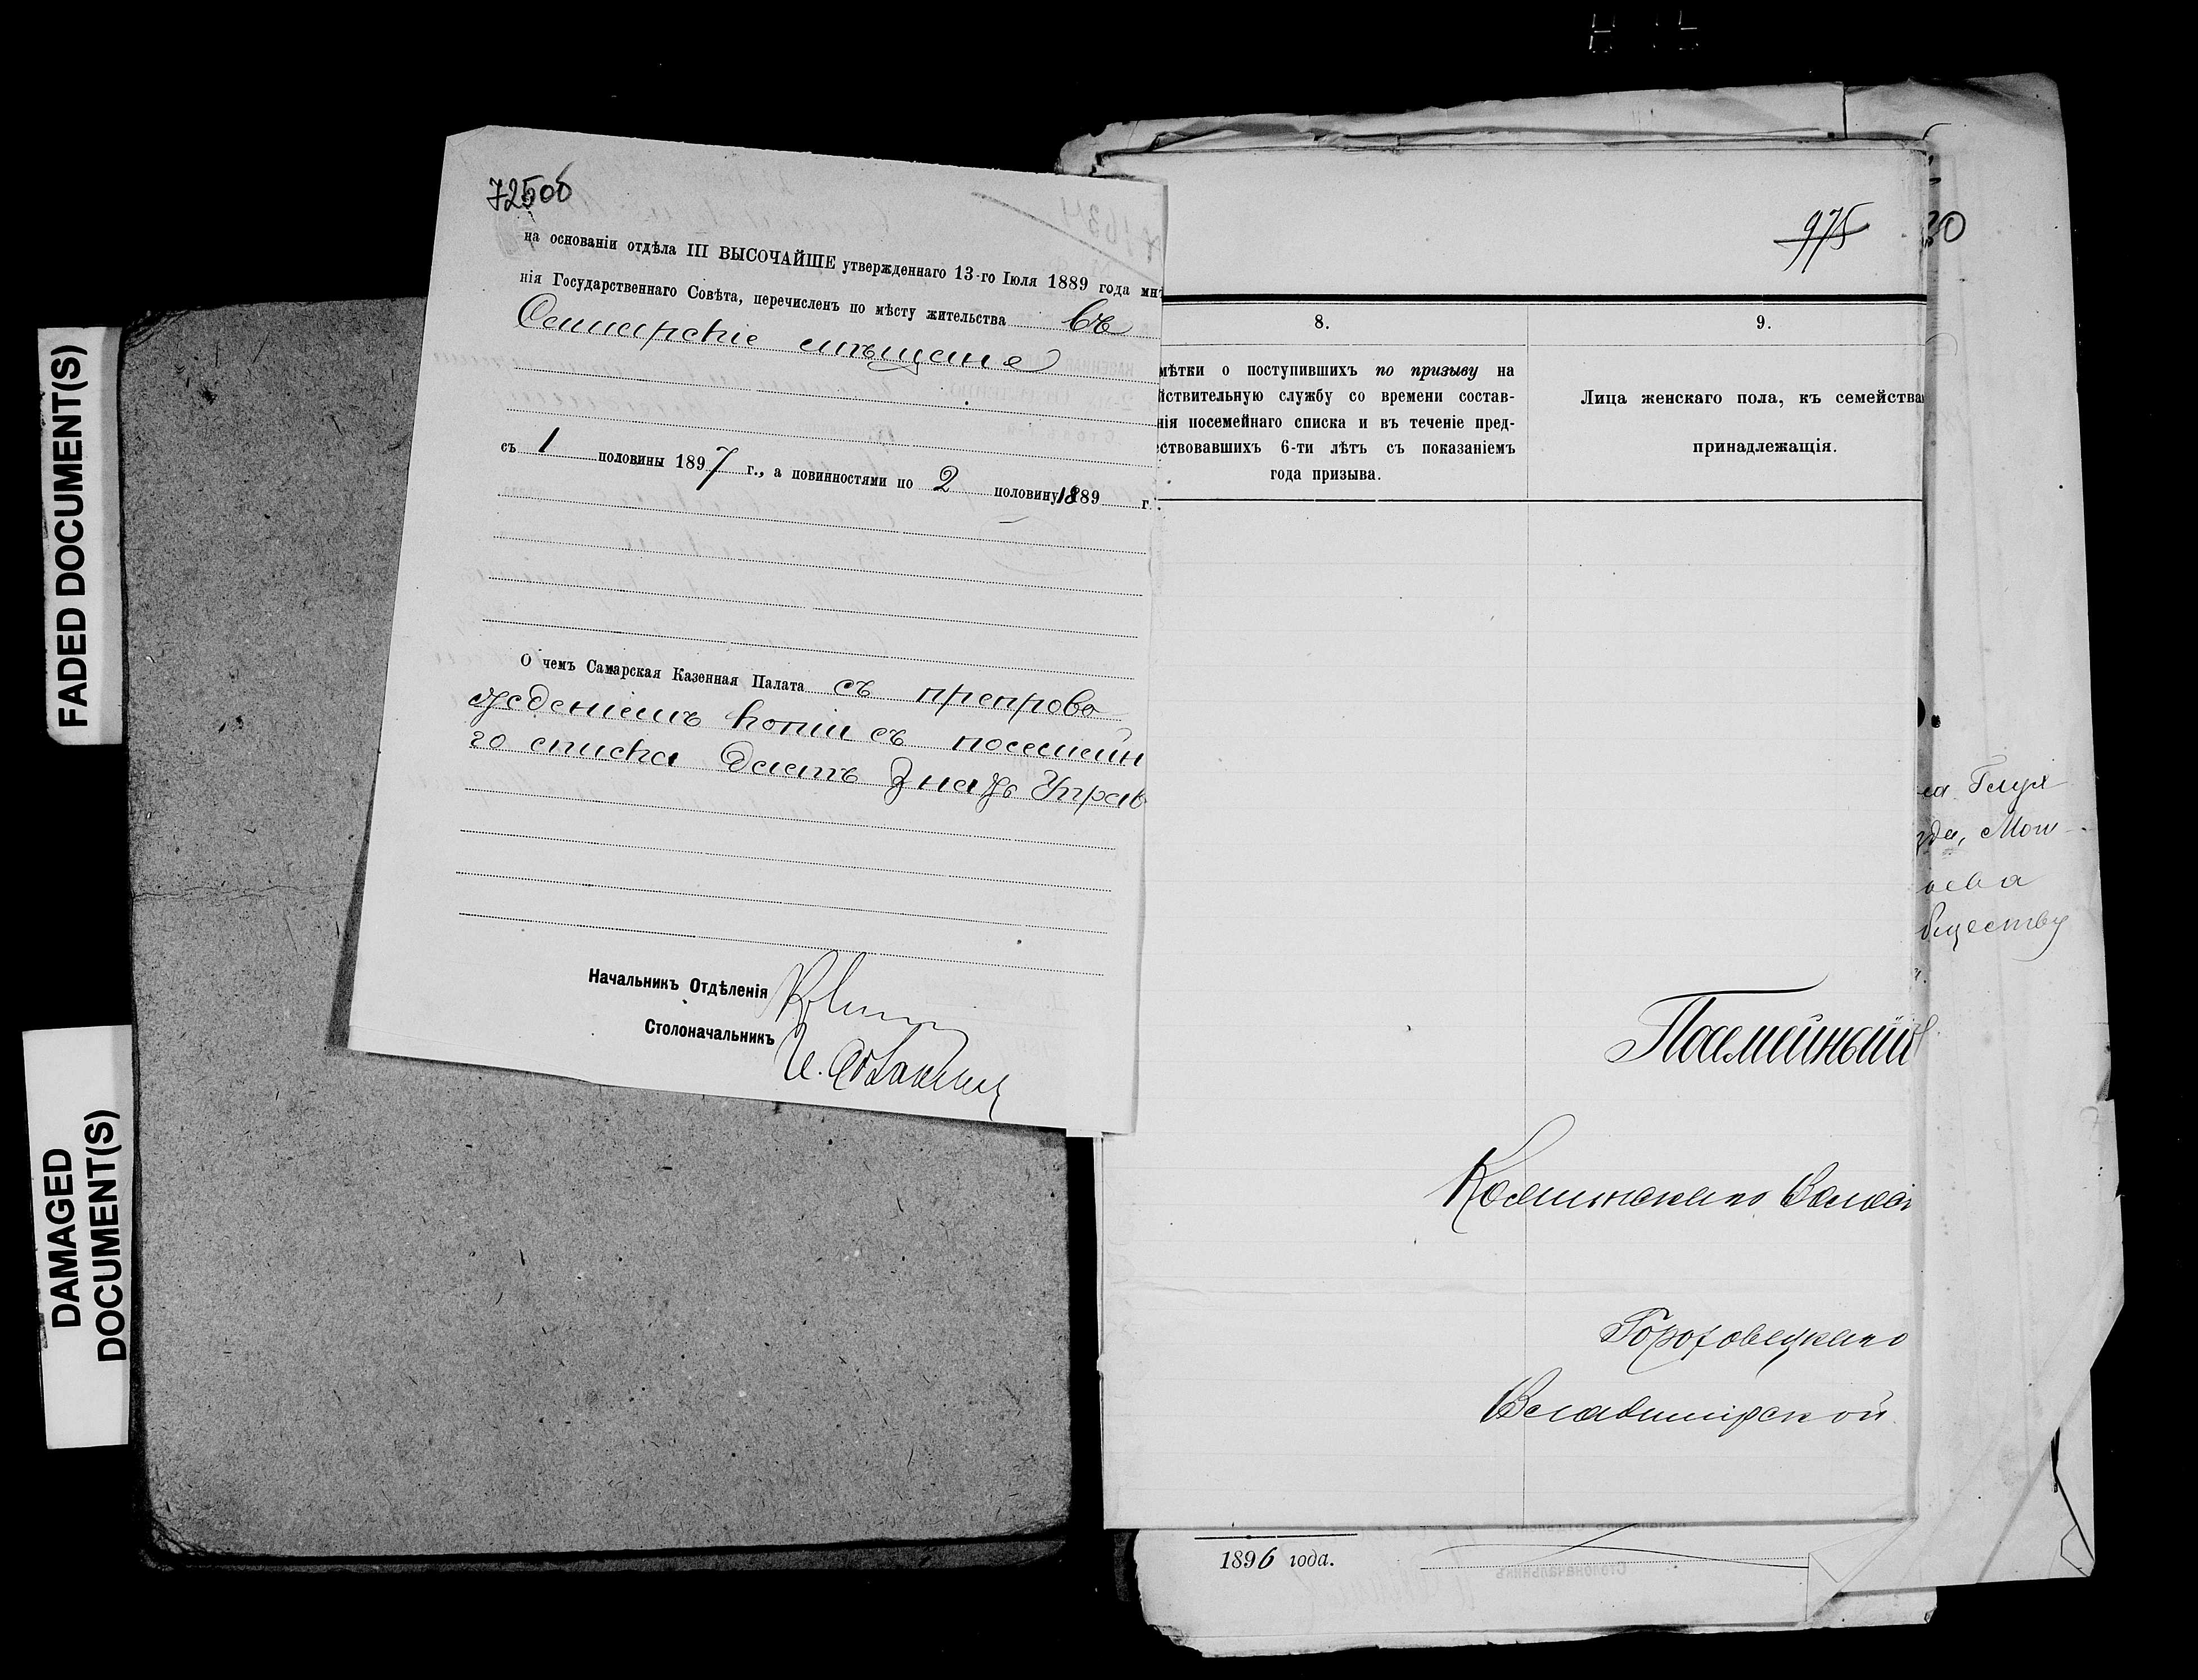 FADED DOCUMENT(S)
DAMAGED
DOCUMENT(S)
72506
на основаніи отдѣла III ВЫСОЧАЙШЕ утвержденнаго 13-го Іюля 1889 года мнѣ
нія Государственнаго Совѣта, перечисленъ по мѣсту жительства въ
мѣщане
съ 1 половины 1897 г., а повинностями по 2 половину 1889 г.
О чемъ Самарская Казенная Палата съ препрово
жденіемъ копіи съ посемейн
го списка даетъ знать Управ
Начальникъ Отдѣленія
Столоначальникъ
975
8.
9.
мѣтки о поступившихъ по призыву на
йствительную службу со времени состав-
нія посемейнаго списка и въ теченіе пред-
ествовавшихъ 6-ти лѣтъ съ показаніемъ
года призыва.
Лица женскаго пола, къ семейства
принадлежащія.
Посемейный
Гороховецкаго
Владимірской
1896 года.
30
да, Мот-
аева
бществу
Столоначальникъ